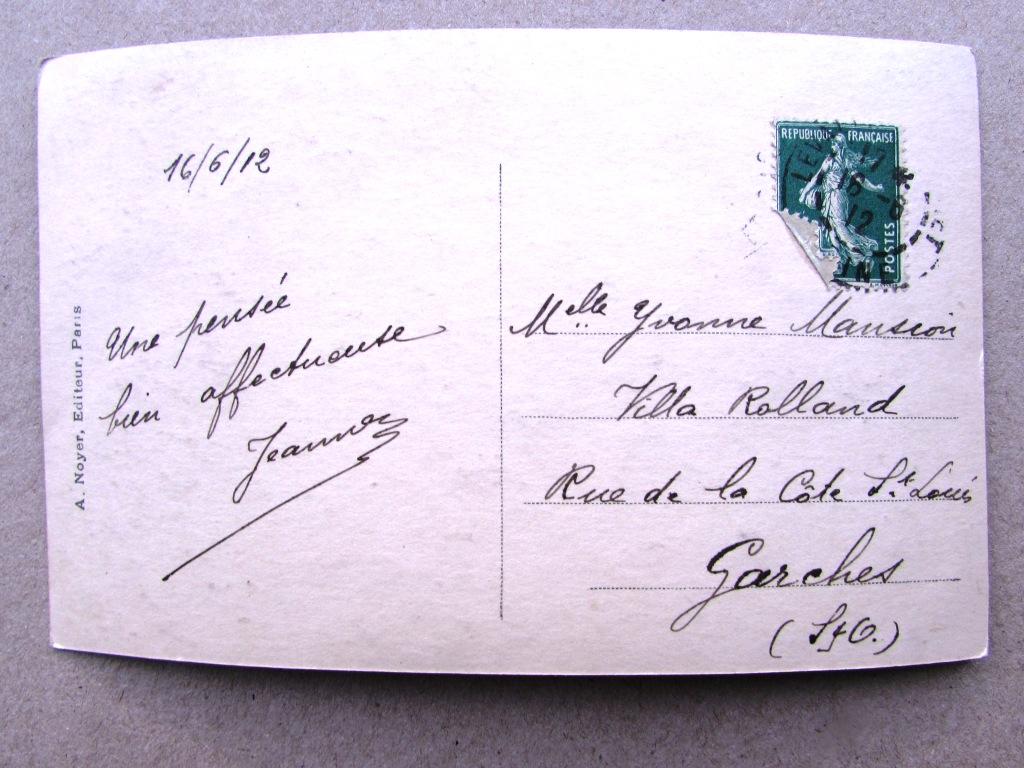 16/6/12
Une pensée
bien affectueuse
A. Noyer, Editeur, Paris
REPUBLIQUE FRANÇAISE
POSTES
16 - 6
12
Melle Yvonne Mansion
Villa Rolland
Rue de la Côte St Louis
Garches
(S&O.)